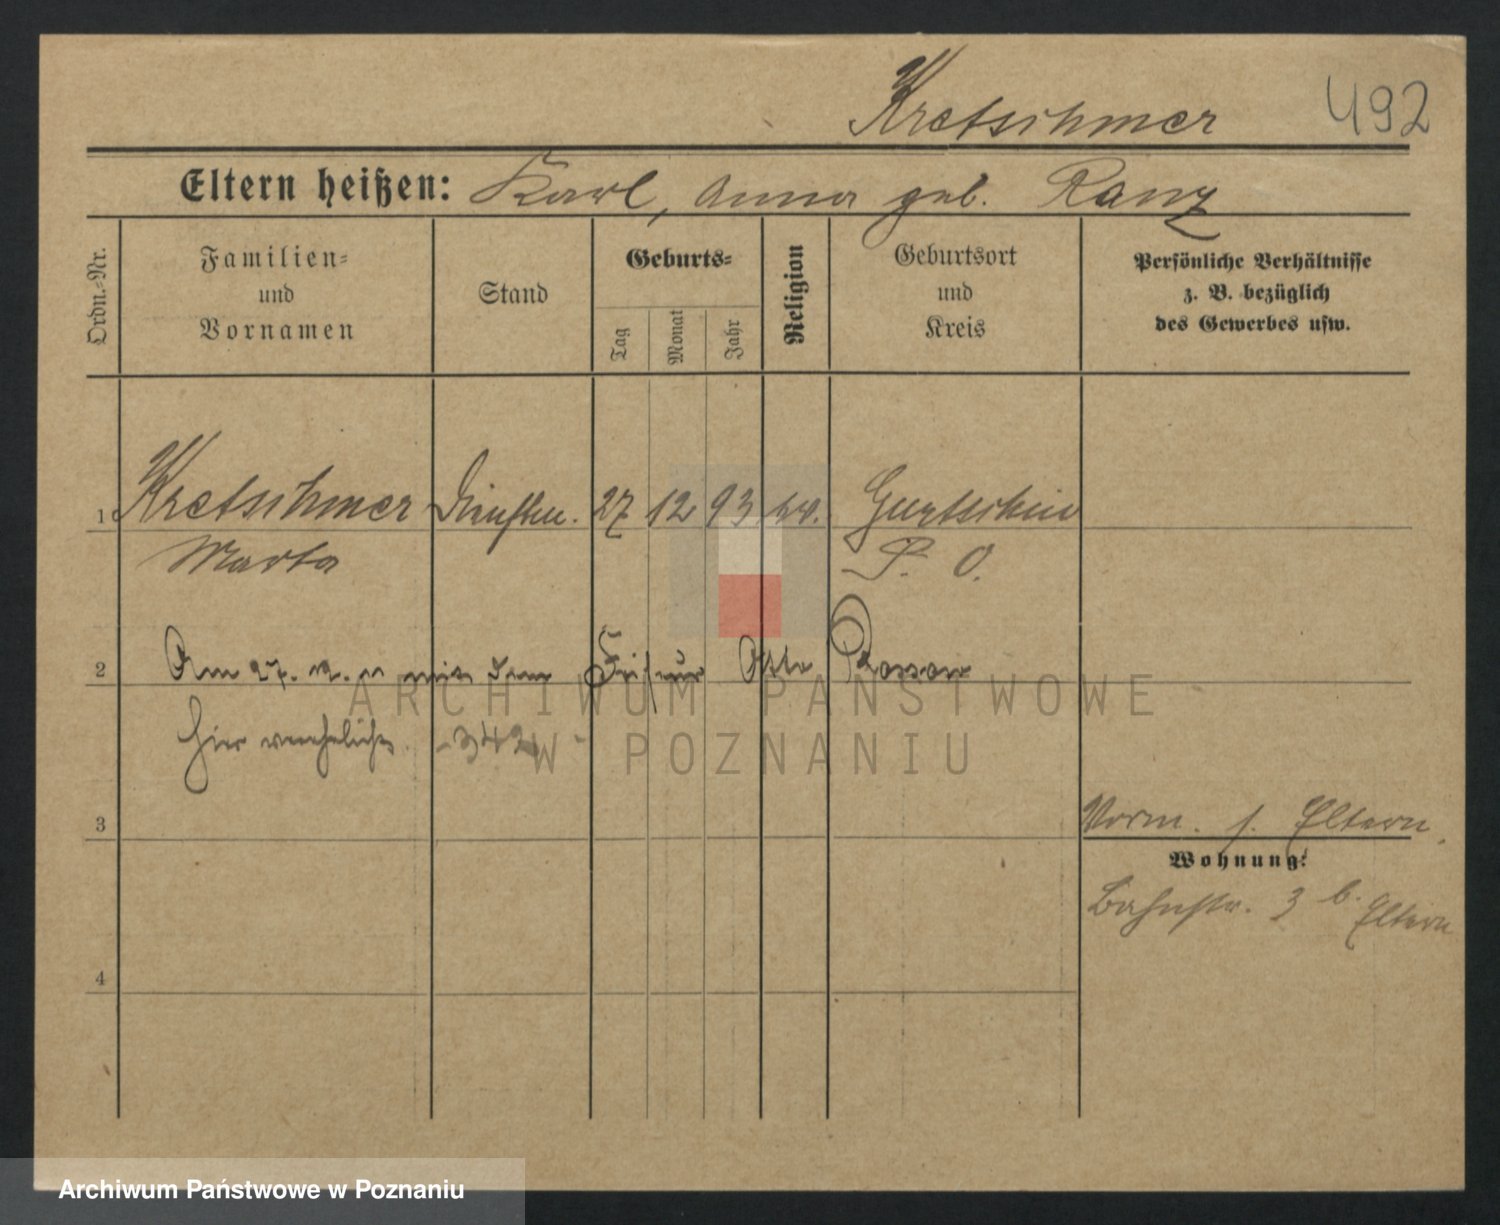 Kretschmer 492
Eltern heißen: Karl, Anna geb. Ranz
Ordn.-Nr.
Familien-
und
Vornamen
Stand
Geburts-
Tag
Monat
Jahr
Religion
Geburtsort
und
Kreis
Persönliche Verhältnisse
z. B. bezüglich
des Gewerbes usw.
1 Kretschmer 27 12 93 ev.
Marta P. O.
2 Am 27. mit dem Friseur Otto
hier verehelicht. - 342 -
ARCHIWUM PAŃSTWOWE
W POZNANIU
3 Vorm. s. Eltern.
Wohnung:
Bahnstr. 3 b. Eltern
4
Archiwum Państwowe w Poznaniu